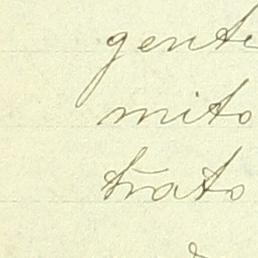 gente
mito
trato